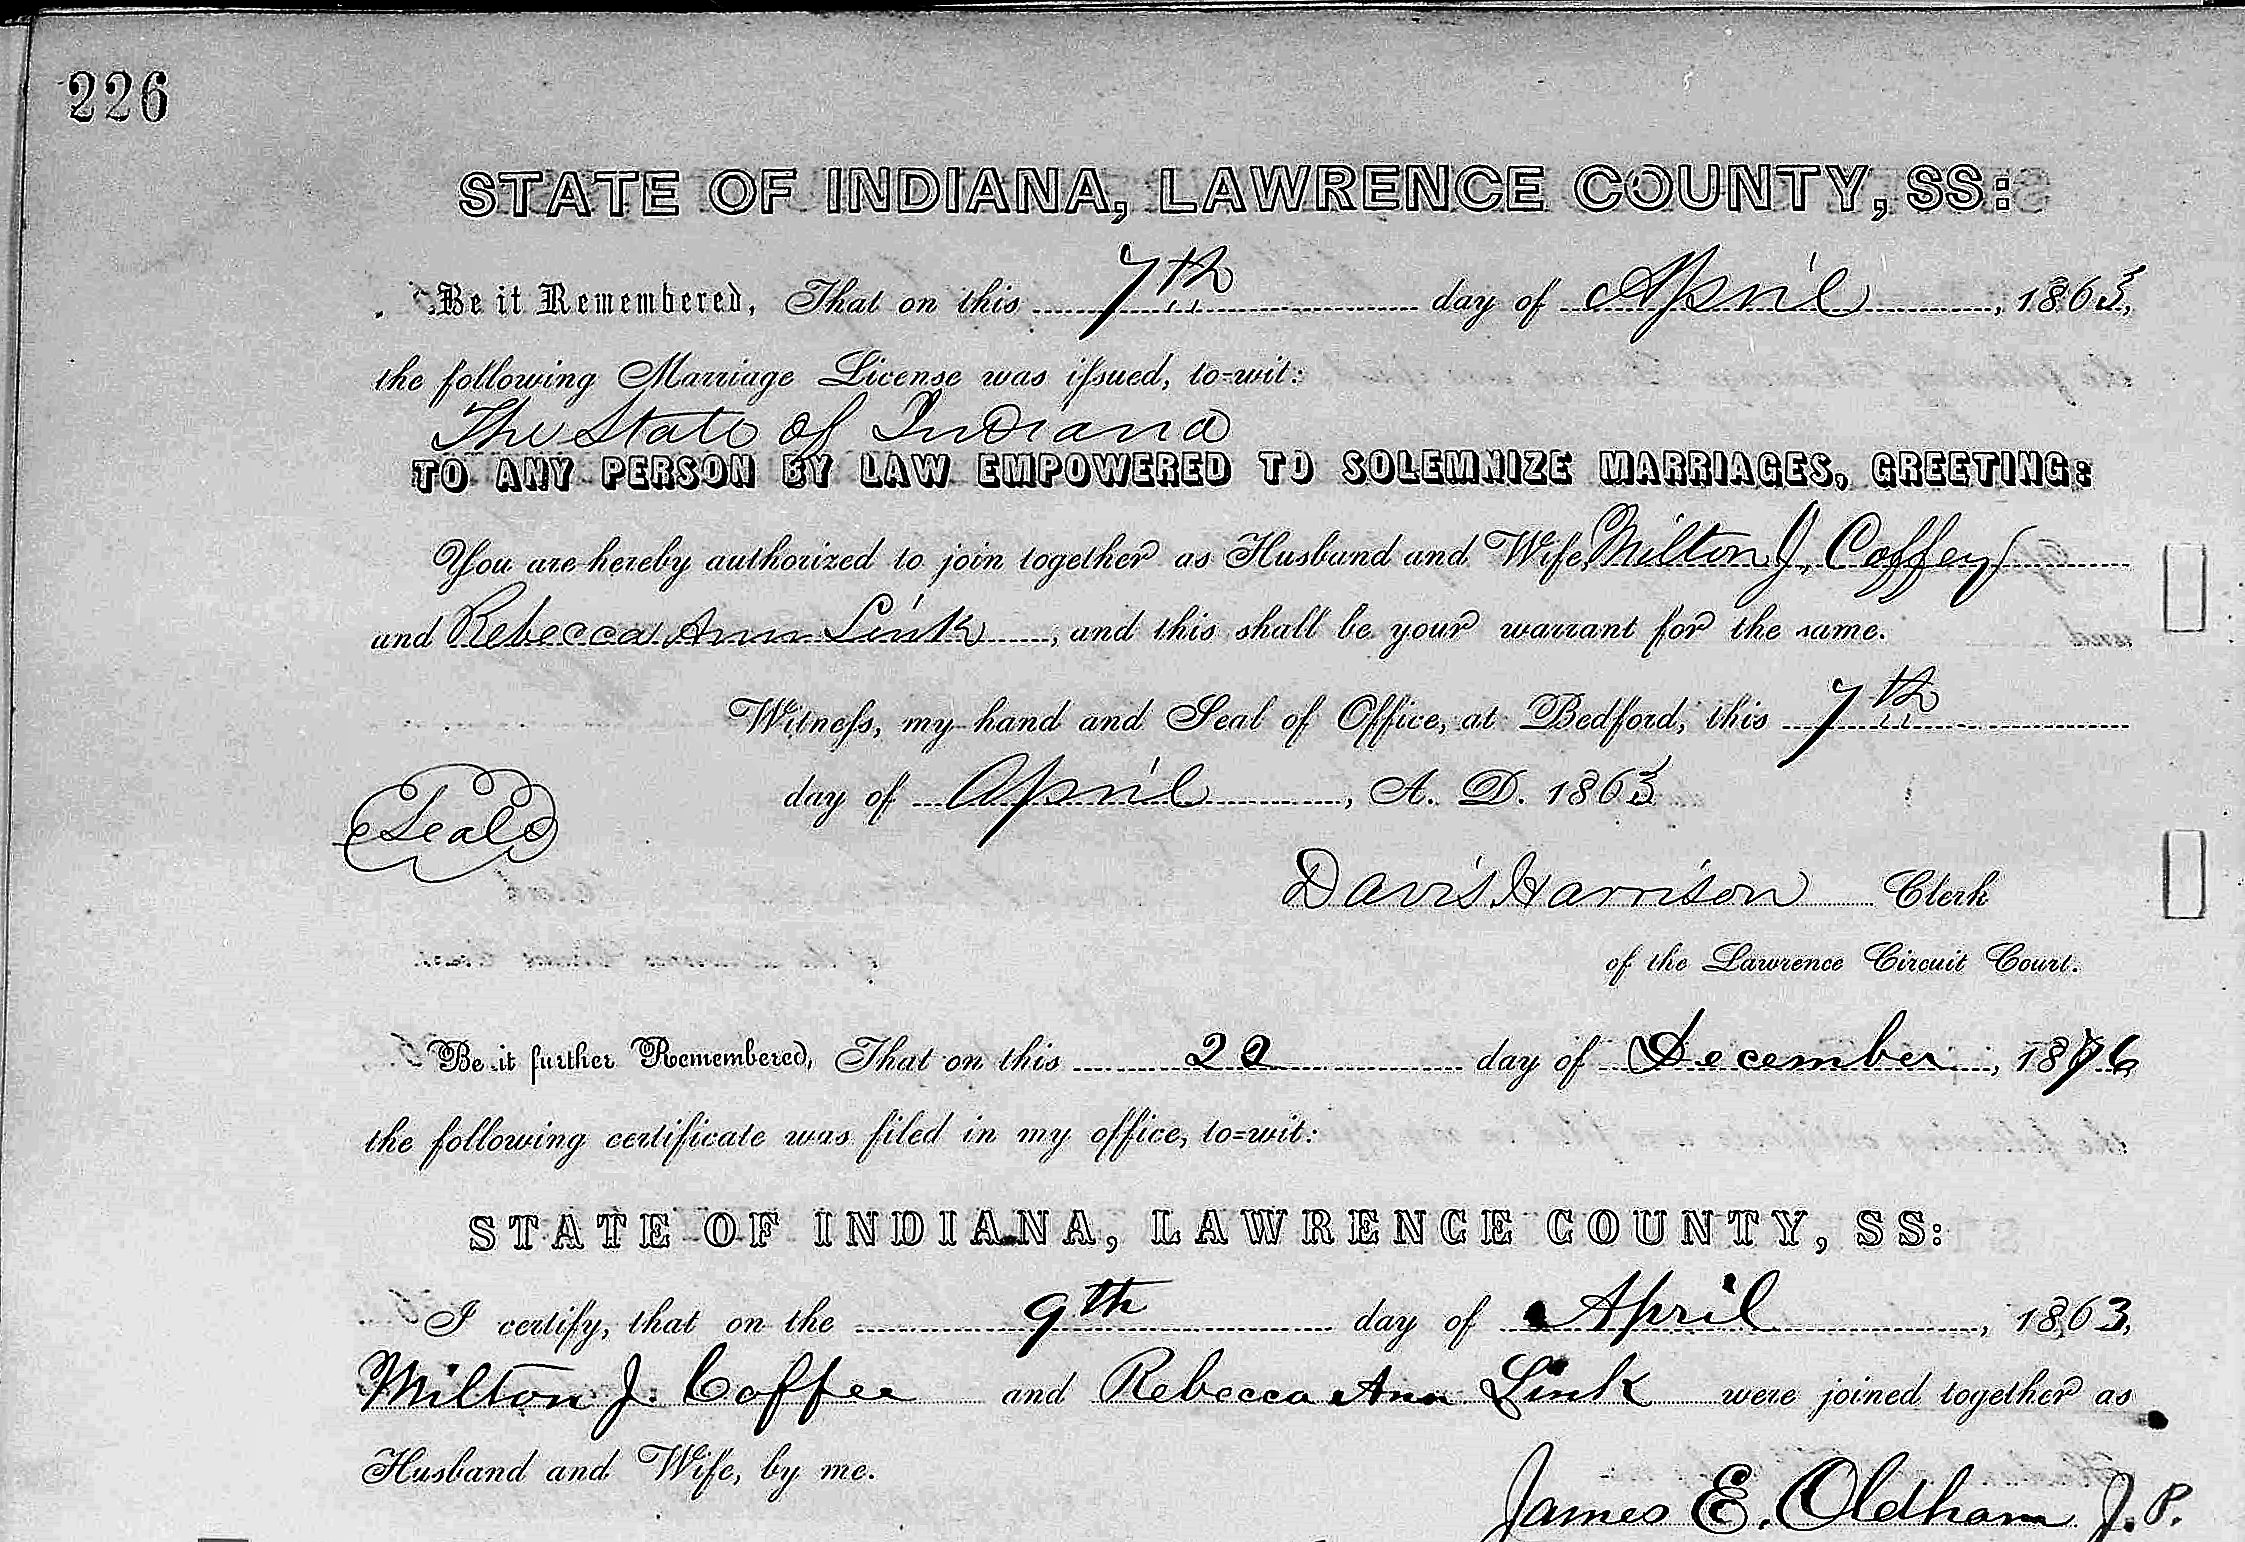 226
STATE OF INDIANA, LAWRENCE COUNTY, SS:
Be it Remembered, That on this 7th day of April, 1863,
the following Marriage License was issued, to-wit:
The State of Indiana
TO ANY PERSON BY LAW EMPOWERED TO SOLEMNIZE MARRIAGES, GREETING:
You are hereby authorized to join together as Husband and Wife, Milton J. Coffey
and Rebecca Ann Link, and this shall be your warrant for the same.
Witness, my hand and Seal of Office, at Bedford, this 7th
day of April, A. D. 1863
Seal
Davis Harrison Clerk
of the Lawrence Circuit Court.
Be it further Remembered, That on this day of December, 1876
the following certificate was filed in my office, to-wit:
STATE OF INDIANA, LAWRENCE COUNTY, SS:
I certify, that on the 9th day of April, 1863,
Milton J. Coffee and Rebecca Ann Link were joined together as
Husband and Wife, by me.
James E. Oldham J. P.